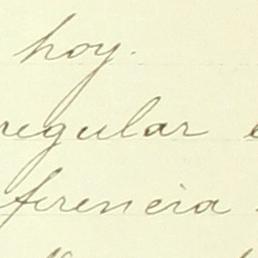 hoy.
regular e
ferencia